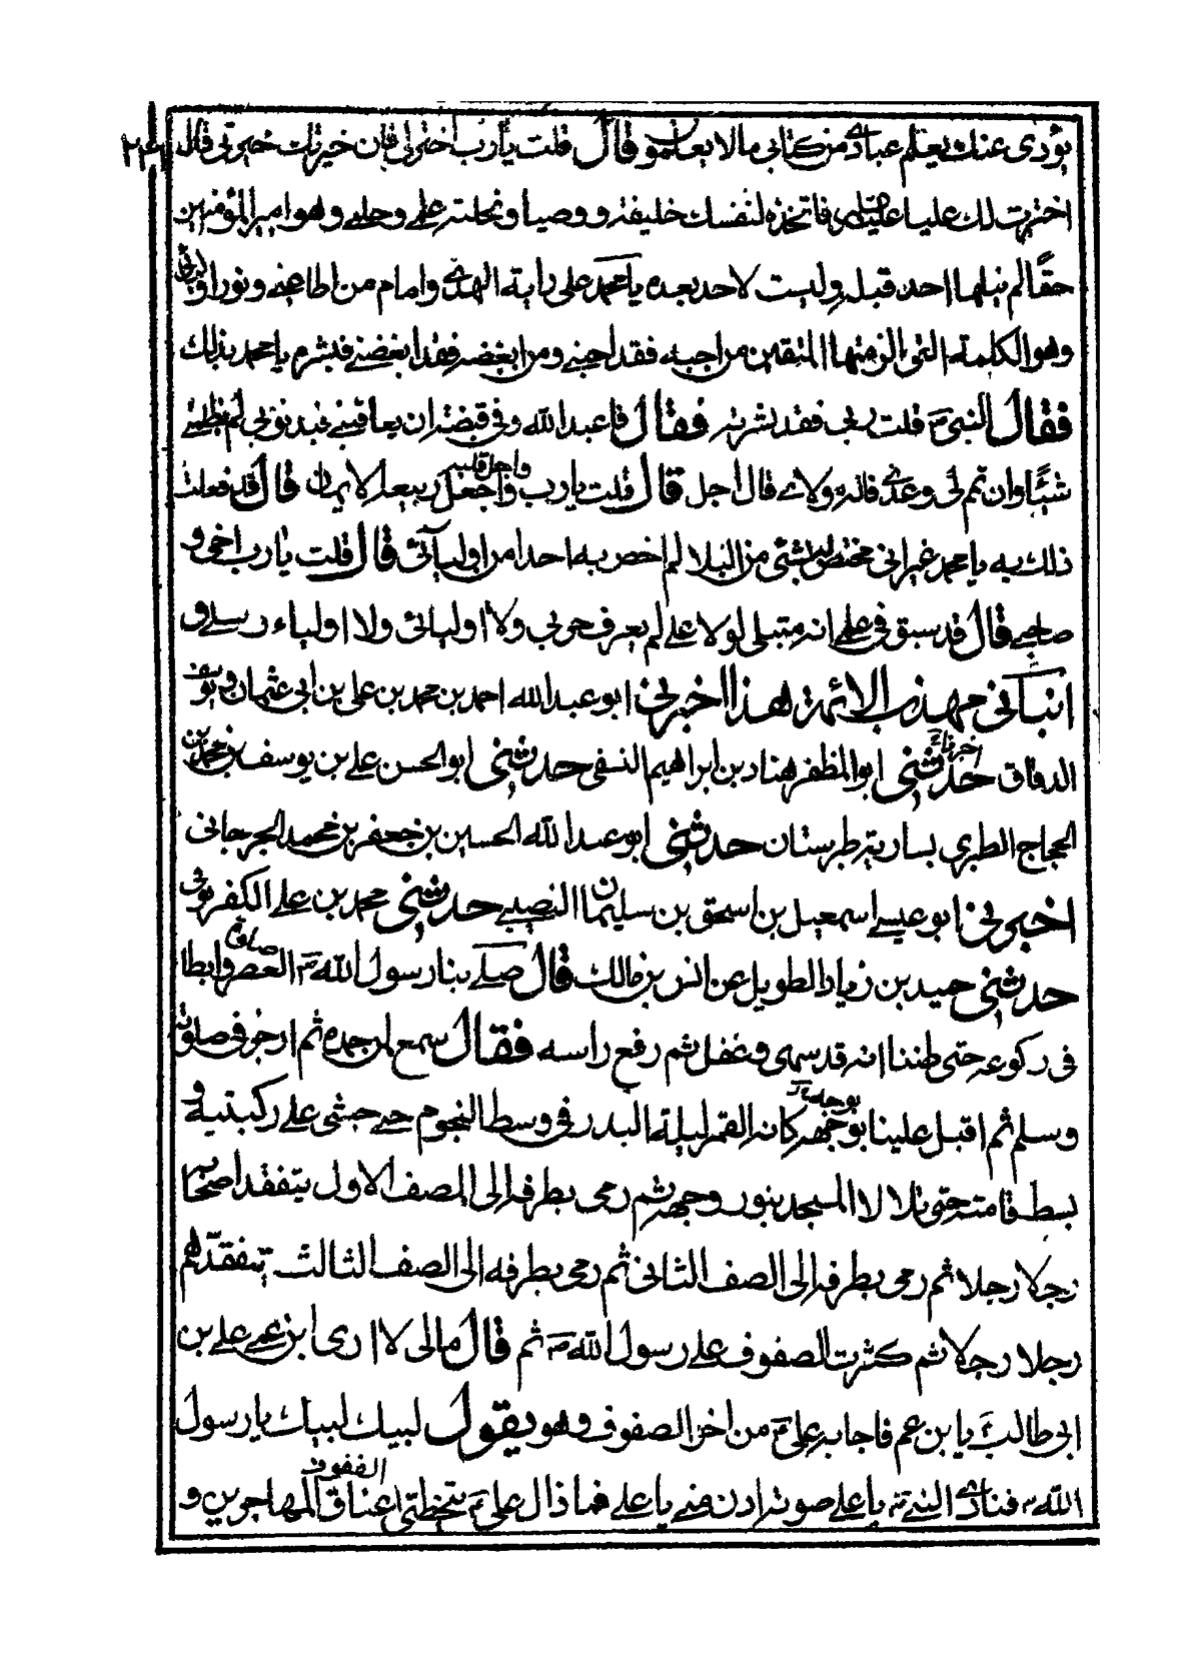 يؤدى عنك يعلم عبادى من كتابى مالا يعلمون قال قلت يارب اختر لى فان خيرتك خيرتى قال
اخترت لك عليا فاتخذه لنفسك خليفة ووصيا ونحلته علمى وحلمى وهو امير المؤمنين
حقًا لم ينلها احد قبله وليست لاحد بعده يا محمد على راية الهدى وامام من اطاعنى ونور اوليائى
وهو الكلمة التى الزمتها المتقين من احبه فقد احبنى ومن ابغضه فقد ابغضنى فبشره يا محمد بذلك
فقال النبى قلت ربى فقد بشرته فقال انا عبد الله وفى قبضته ان يعاقبنى فبذنوبى لم يظلمنى
شيئًا وان تم لى وعدى فانه مولاى قال اجل قال قلت يارب واجعل ربيعه الايمان قال قد فعلت
واجل قلبه
ذلك به يا محمد غير انى مختصه بشئ من البلا لم اخص به احدا من اوليآئى قال قلت يارب اخى و
صاحبى قال قد سبق فى علمى انه مبتلى لولا على لم يعرف حزبى ولا اوليائى ولا اولياء رسلى و
انبانى مهذب الائمة هذا اخبرنى ابو عبد الله احمد بن محمد بن على بن ابى عثمان ويوسف
الدقاق حدثنى ابو المظفر هناد بن ابراهيم النسفى حدثنى ابو الحسن على بن يوسف بن محمد بن
الحجاج الطبرى بسارية طبرستان حدثنى ابو عبد الله الحسين بن جعفر بن محمد الجرجانى
اخبرنى ابو عيسى اسمعيل بن اسحق بن سليمان النصيبى حدثنى محمد بن على الكفرثوثى
حدثنى حميد بن زياد الطويل عن انس بن مالك قال صلى بنا رسول الله صلوة العصر وابطا
فى ركوعه حتى ظننا انه قد سهى وغفل ثم رفع راسه فقال سمع لمن حمده ثم اوجز فى صلوته
وسلم ثم اقبل علينا بوجهه كانه القمر ليلة البدر فى وسط النجوم حتى جثى على ركبتيه و
بسط قامته حتى تلالا المسجد بنور وجهه ثم رمى بطرفه الى الصف الاول يتفقد اصحابه
رجلا رجلا ثم رمى بطرفه الى الصف الثانى ثم رمى بطرفه الى الصف الثالث يتفقدهم
رجلا رجلا ثم كثرت الصفوف على رسول الله ثم قال مالى لا ارى ابن عمى على بن
ابى طالب يا بن عم فاجابه على من اخر الصفوف وهو يقول لبيك لبيك يا رسول
الله فنادى النبى يا على صوته ادن منى يا على فما زال على يتخطى اعناق المهاجرين و
الصفوف